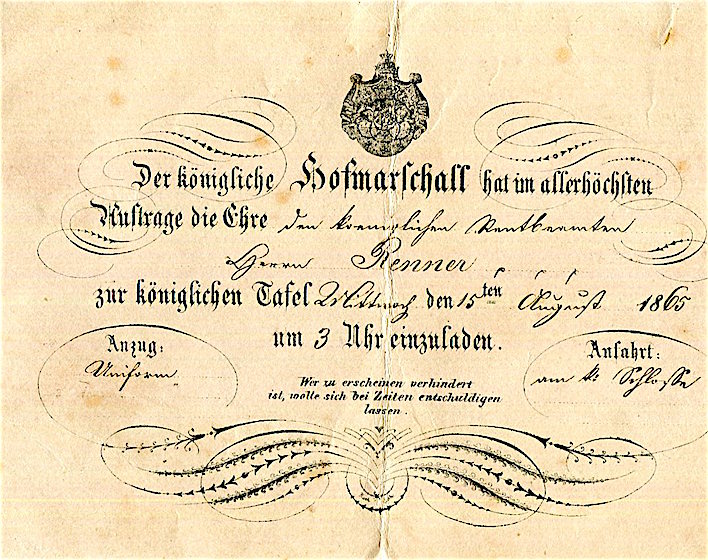 Der königliche Hofmarschall hat im allerhöchsten
Auftrage die Ehre den koeniglichen Rentbeamten
Herrn Renner
zur königlichen Tafel Mittwoch den 15ten August 1865
um 3 Uhr einzuladen.
Anzug:
Uniform
Wer zu erscheinen verhindert
ist, wolle sich bei Zeiten entschuldigen
lassen.
Anfahrt:
am k: Schlosse